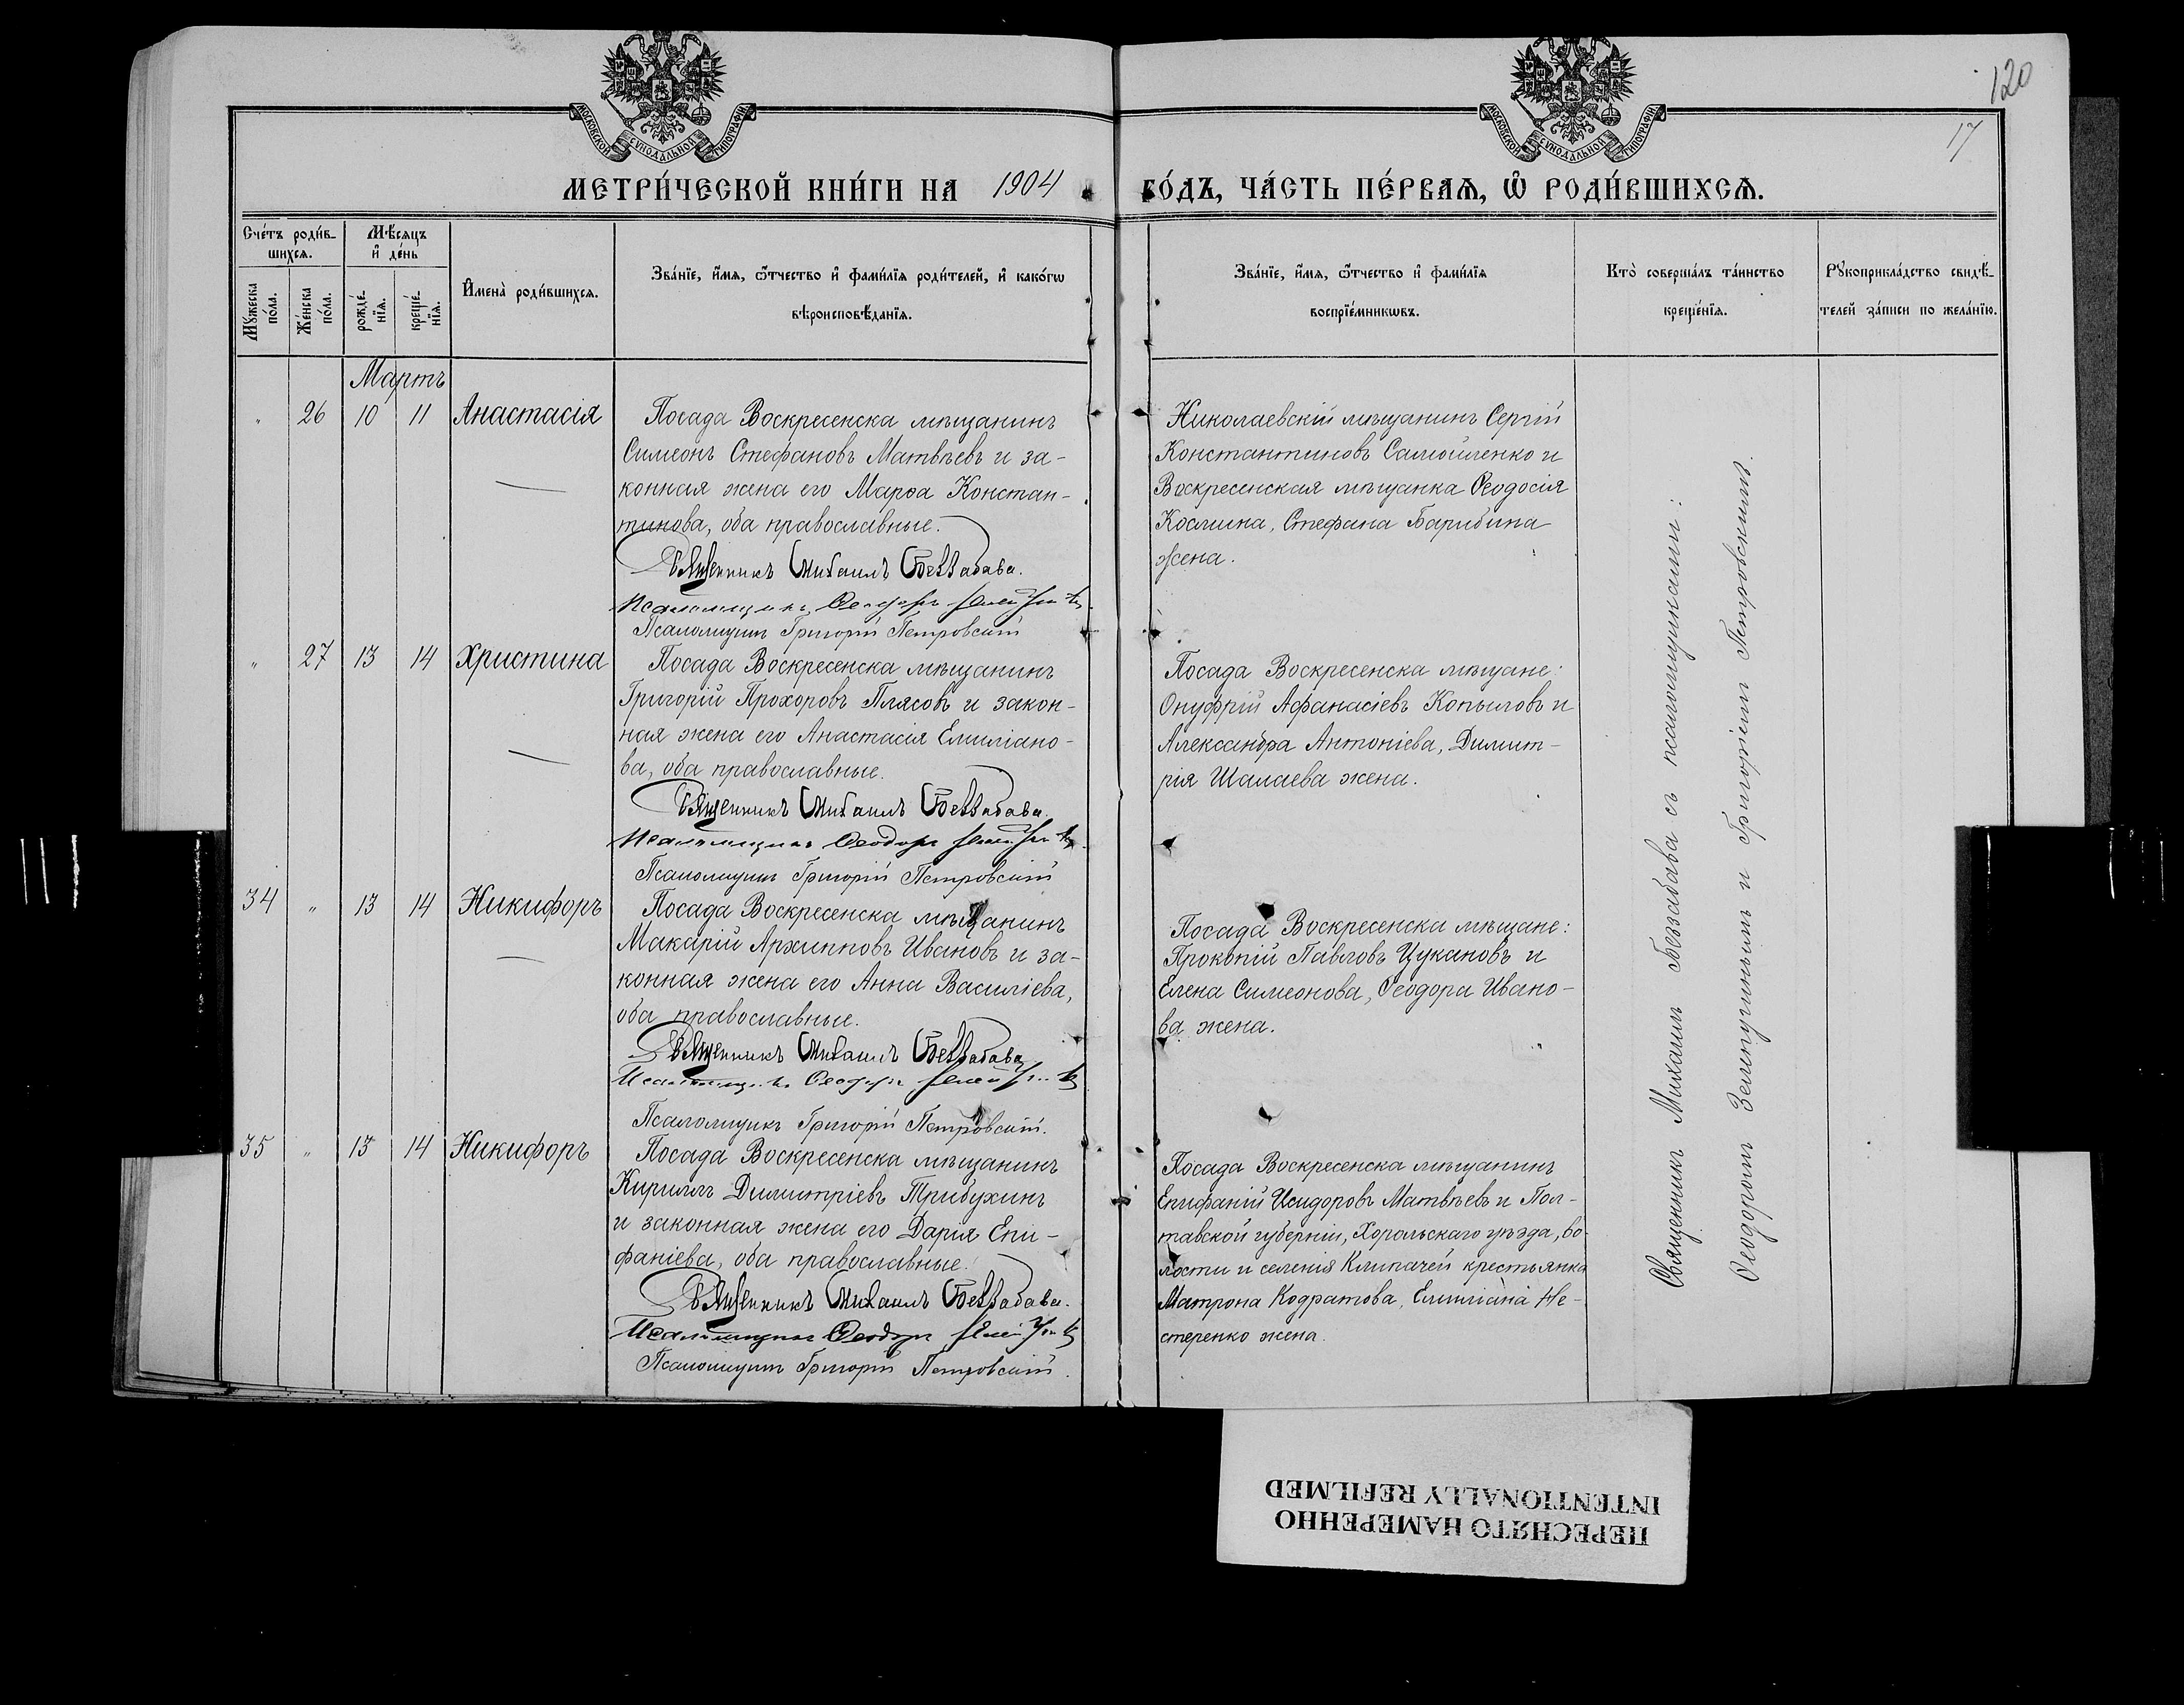 120
17
МОСКОВСКОЙ СѴНОДАЛЬНОЙ ТИПОГРАФІИ.
МОСКОВСКОЙ СѴНОДАЛЬНОЙ ТИПОГРАФІИ.
МЕТРИ́ЧЕСКОЙ КНИ́ГИ НА 1904 ГО́ДЪ, ЧА́СТЬ ПЕ́РВАѦ, Ѽ РОДИ́ВШИХСѦ.
Сче́тъ роди́в-
шихсѧ.
Мꙋ́жеска
по́ла.
Же́нска
по́ла.
Мѣ́сяцъ
и҆ де́нь
рожде́-
нїѧ.
креще́-
нїѧ.
И҆мена̀ роди́вшихсѧ.
Зва́нїе, и҆́мѧ, ѻ҆́тчество и҆ фами́лїѧ роди́телей, и҆ како́гѡ
вѣроисповѣ́данїѧ.
Зва́нїе, и҆́мѧ, ѻ҆́тчество и҆ фами́лїѧ
воспрїе́мникѡвъ.
Кто̀ соверша́лъ та́инство
креще́нїѧ.
Рꙋкоприкла́дство свидѣ́-
телей за́писи по жела́нїю.
Мартъ
" 26 10 11 Анастасія
Посада Воскресенска мѣщанинъ
Симеонъ Стефановъ Матвѣевъ и за-
конная жена его Марѳа Констан-
тинова, оба православные.
Священникъ Михаилъ Беззабава.
Псаломщикъ Ѳеодоръ
Псаломщикъ Григорій Петровскій
Николаевскій мѣщанинъ Сергій
Константиновъ Самойленко и
Воскресенская мѣщанка Ѳеодосія
Космина, Стефана Барибина
жена.
" 27 13 14 Христина
Посада Воскресенска мѣщанинъ
Григорій Прохоровъ Плясовъ и закон-
ная жена его Анастасія Емиліано-
ва, оба православные.
Священникъ Михаилъ Беззабава.
Псаломщикъ Ѳеодоръ
Псаломщикъ Григорій Петровскій
Посада Воскресенска мѣщане:
Онуфрій Афанасіевъ Копыловъ и
Александра Антоніева, Димит-
рія Шалаева жена.
34 " 13 14 Никифоръ
Посада Воскресенска мѣщанинъ
Макарій Архипповъ Ивановъ и за-
конная жена его Анна Василіева,
оба православные.
Священникъ Михаилъ Беззабава
Псаломщикъ Ѳеодоръ
Псаломщикъ Григорій Петровскій.
Посада Воскресенска мѣщане:
Прокопій Павловъ Цукановъ и
Елена Симеонова, Ѳеодора Ивано-
ва жена.
35 " 13 14 Никифоръ
Посада Воскресенска мѣщанинъ
Кириллъ Димитріевъ Трибухинъ
и законная жена его Дарія Епи-
фаніева, оба православные.
Священникъ Михаилъ Беззабава.
Псаломщикъ Ѳеодоръ
Псаломщикъ Григорій Петровскій.
Посада Воскресенска мѣщанинъ
Епифаній Исидоровъ Матвѣевъ и Пол-
тавской губерніи, Хорольскаго уѣзда, во-
лости и селенія Клипачей крестьянка
Матрона Кодратова, Емиліана Не-
стеренко жена.
Священникъ Михаилъ Беззабава съ псаломщиками:
Ѳеодоромъ и Григоріемъ Петровскимъ.
ПЕРЕСНЯТО НАМЕРЕННО
INTENTIONALLY REFILMED